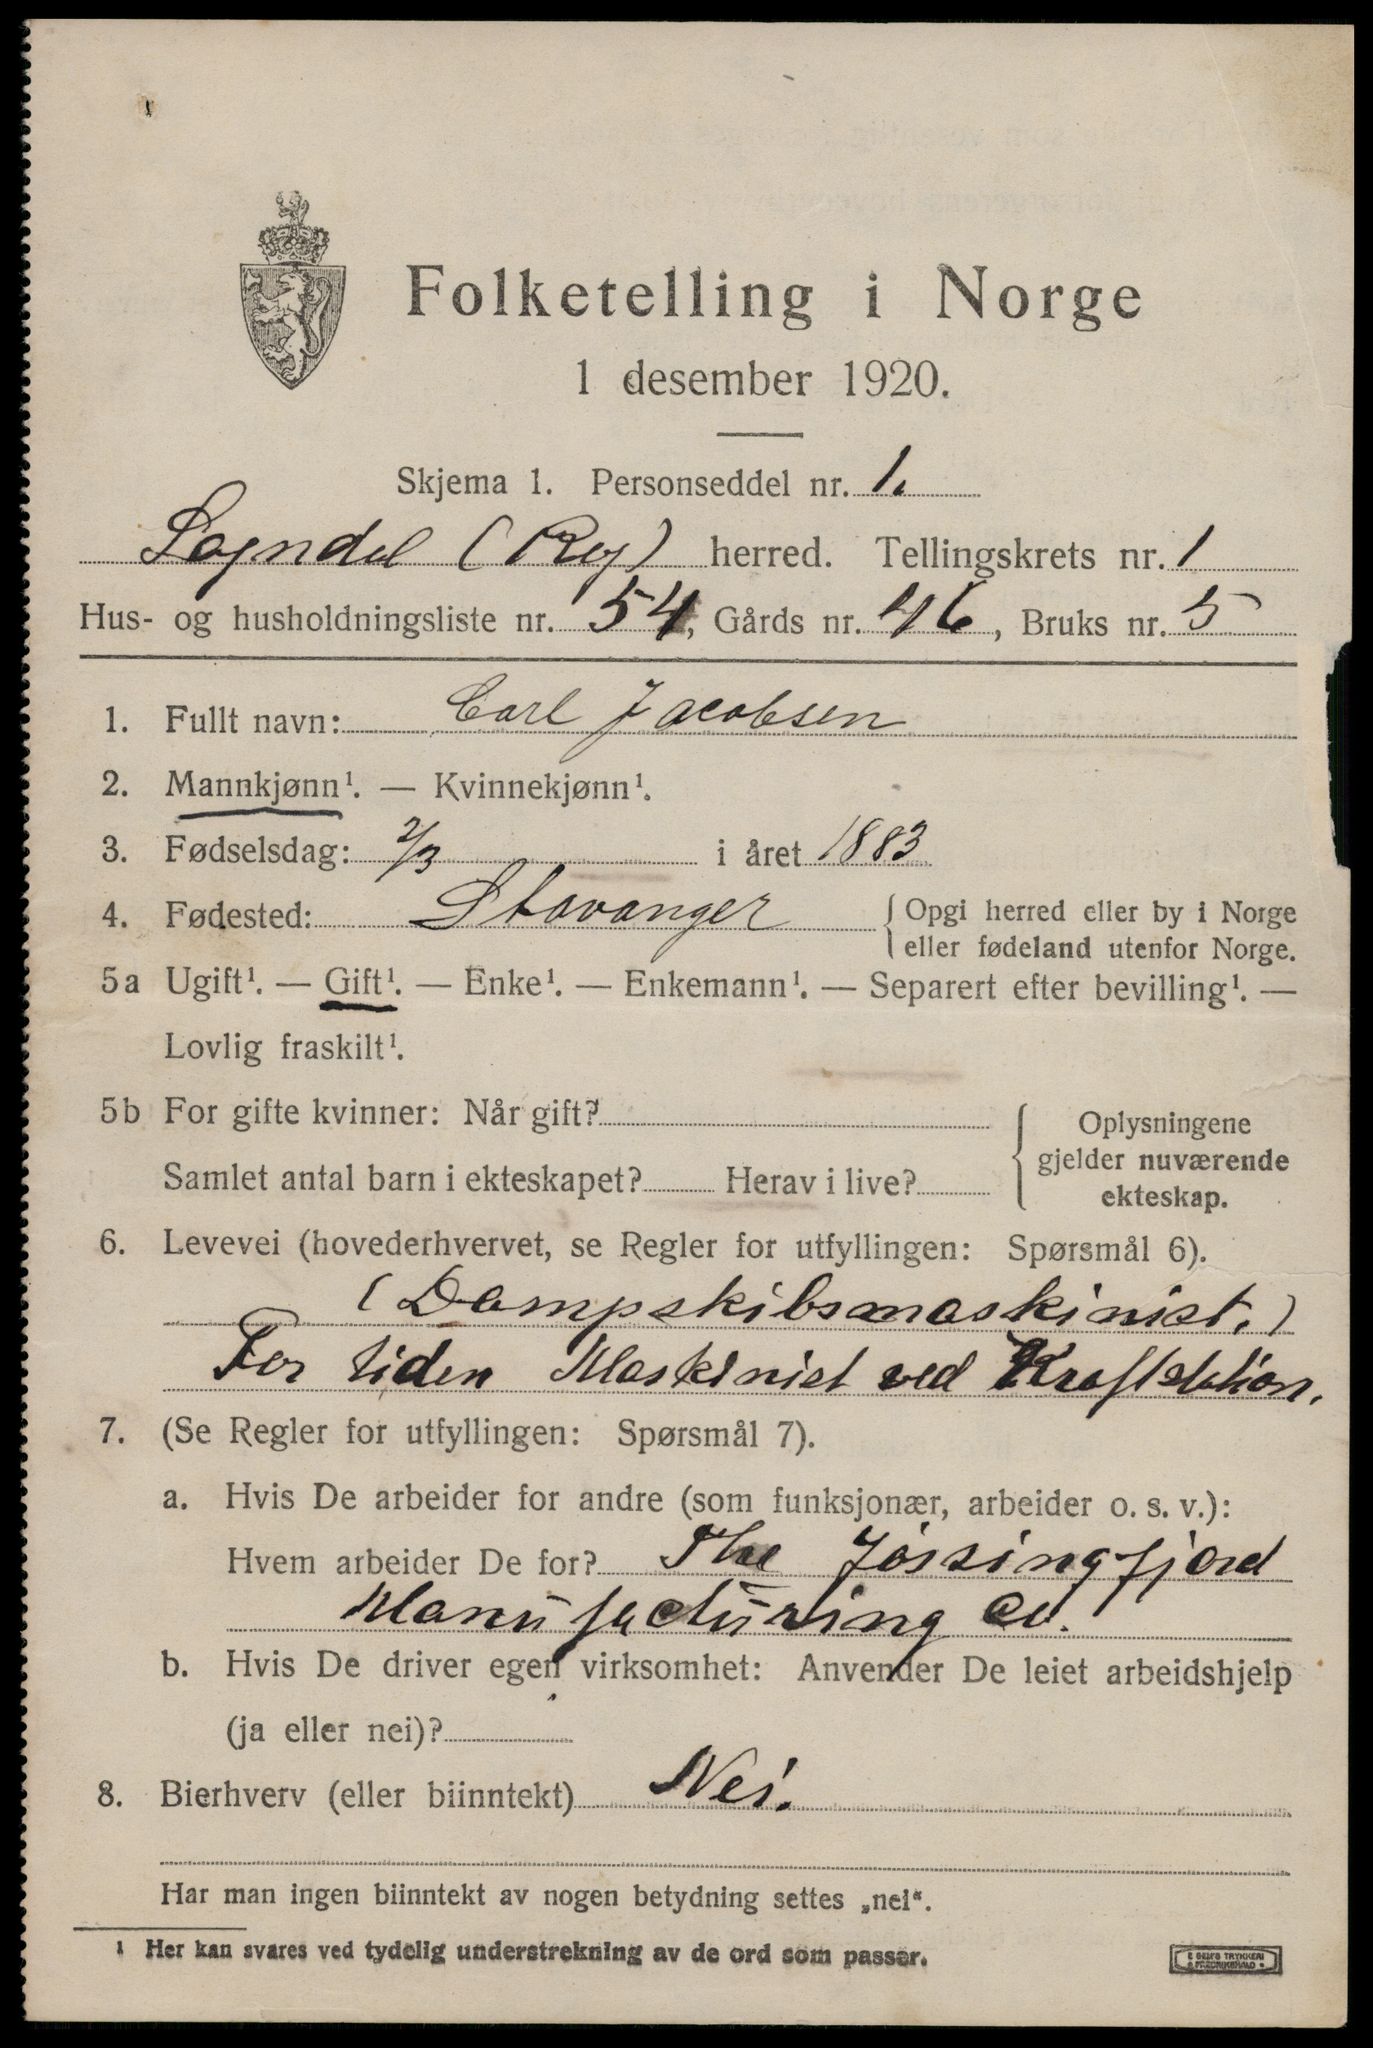 Folketelling i Norge
1 desember 1920.
Skjema 1. Personseddel nr. 1.
Sogndal (Rog) herred. Tellingskrets nr. 1
Hus- og husholdningsliste nr. 54, Gårds nr. 46, Bruks nr. 5
1. Fullt navn: Carl Jacobsen
2. Mannkjønn¹. — Kvinnekjønn¹.
3. Fødselsdag: 2/3 i året 1883
4. Fødested: Stavanger { Opgi herred eller by i Norge
eller fødeland utenfor Norge.
5a Ugift¹. — Gift¹. — Enke¹. — Enkemann¹. — Separert efter bevilling¹. —
Lovlig fraskilt¹.
5b For gifte kvinner: Når gift?
Samlet antal barn i ekteskapet? Herav i live?
Oplysningene
gjelder nuværende
ekteskap.
6. Levevei (hovederhvervet, se Regler for utfyllingen: Spørsmål 6).
(Dampskibsmaskinist.)
For tiden Maskinist ved Kraftstation.
7. (Se Regler for utfyllingen: Spørsmål 7).
a. Hvis De arbeider for andre (som funksjonær, arbeider o. s. v.):
Hvem arbeider De for? The Jøssingfjord
Manufacturing Co.
b. Hvis De driver egen virksomhet: Anvender De leiet arbeidshjelp
(ja eller nei)?
8. Bierhverv (eller biinntekt) Nei.
Har man ingen biinntekt av nogen betydning settes „nei“.
¹ Her kan svares ved tydelig understrekning av de ord som passer.
E SEM'S TRYKKERI
FREDRIKSHALD